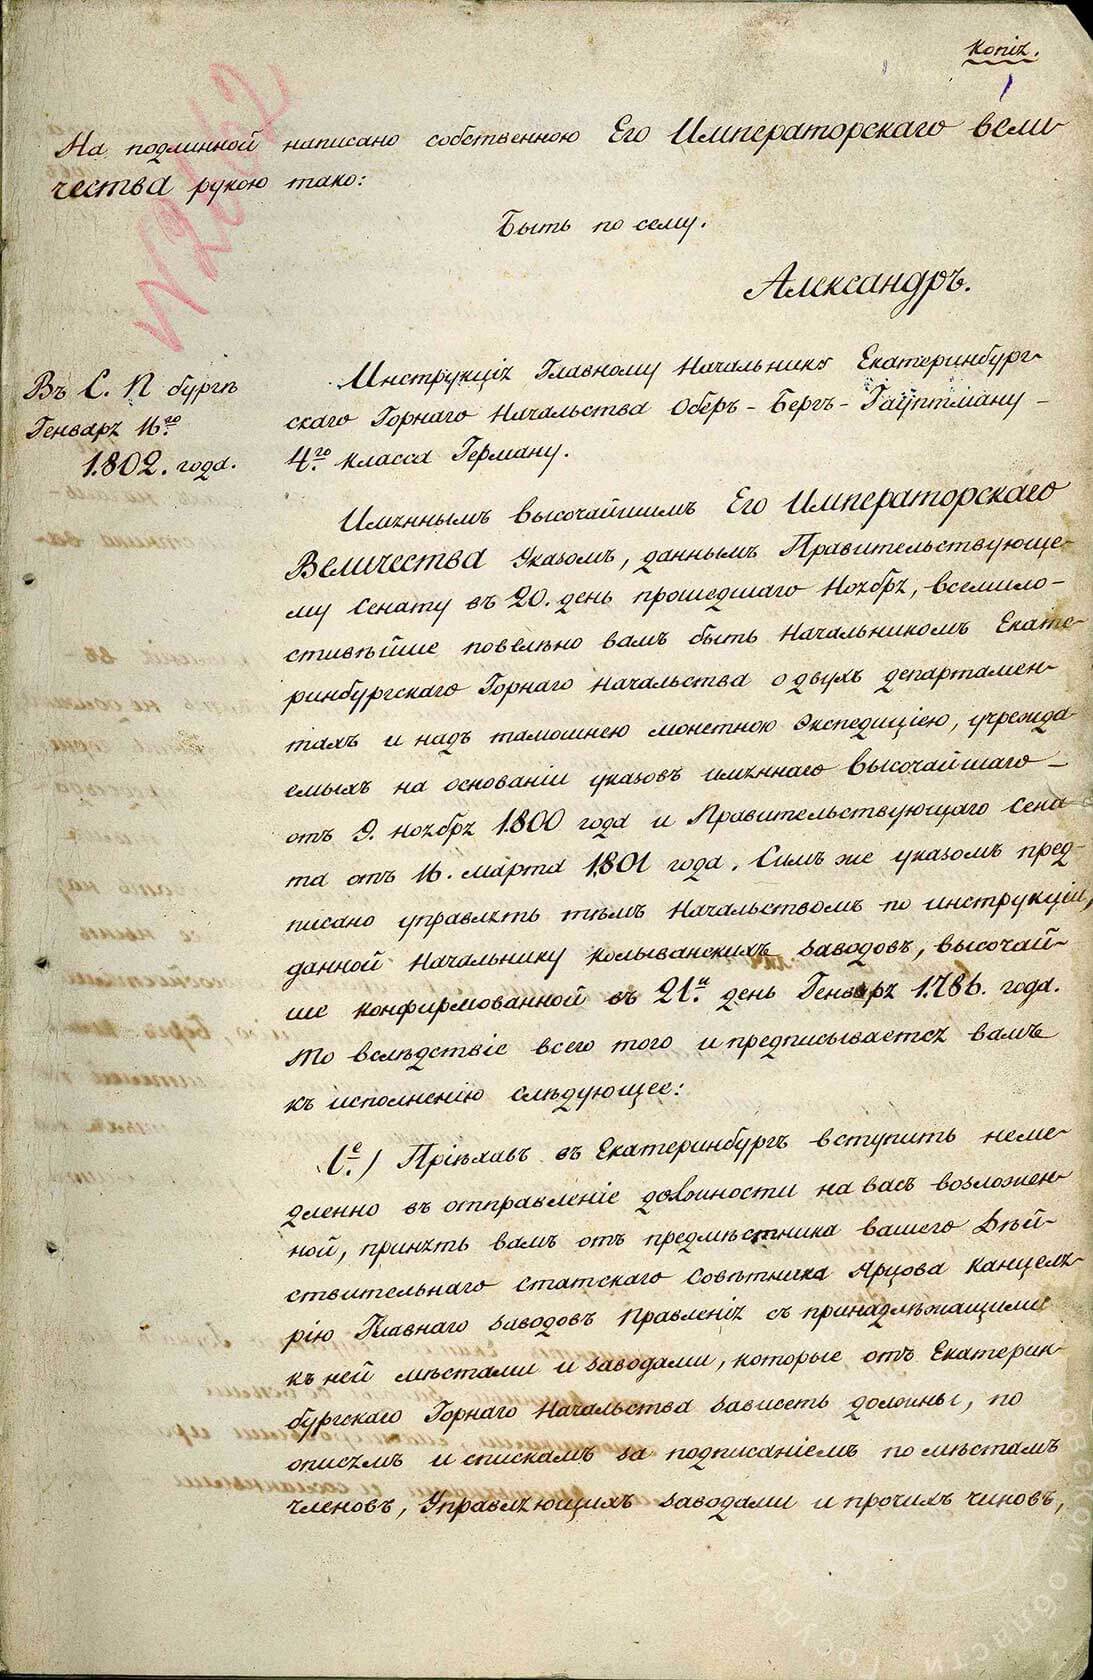 Копія.
1
На подлинной написано собственною Его Императорскаго вели-
чества рукою тако:
Быть по сему.
Александръ.
Въ С. П бургѣ
Генваря 16го
1.802. года.
Инструкція Главному Начальнику Екатеринбург-
скаго Горнаго Начальства Оберъ-Бергъ-Гауптману-
4го класса Герману.
Имяннымъ высочайшимъ Его Императорскаго
Величества Указомъ, даннымъ Правительствующе-
му Сенату въ 20. день прошедшаго Ноября, всемило-
стивѣйше повелѣно вамъ быть Начальникомъ Екате-
ринбургскаго Горнаго Начальства о двухъ департамен-
тахъ и надъ тамошнею монетною Экспедиціею, учрежда-
емыхъ на основаніи указовъ имяннаго высочайшаго-
отъ 9. ноября 1.800 года и Правительствующаго Сена-
та отъ 16. марта 1.801 года. Симъ же указомъ пред-
писано управлять тѣмъ Начальствомъ по инструкціи,
данной Начальнику колыванскихъ заводовъ, высочай-
ше конфирмованной въ 21й день Генваря 1.786. года.
То вслѣдствіе всего того и предписывается вамъ
къ исполненію слѣдующее:
1.е) Пріѣхавъ въ Екатеринбургъ вступить неме-
дленно въ отправленіе должности на васъ возложен-
ной, принять вамъ отъ предмѣстника вашего Дѣй-
ствительнаго статскаго Совѣтника Ярцова Канцеля-
рію Главнаго заводовъ Правленія съ принадлѣжащими
къ ней мѣстами и заводами, которые отъ Екатерин-
бургскаго Горнаго Начальства зависеть должны, по
описямъ и спискамъ за подписаніемъ по мѣстамъ
членовъ, Управляющихъ заводами и прочихъ чиновъ,